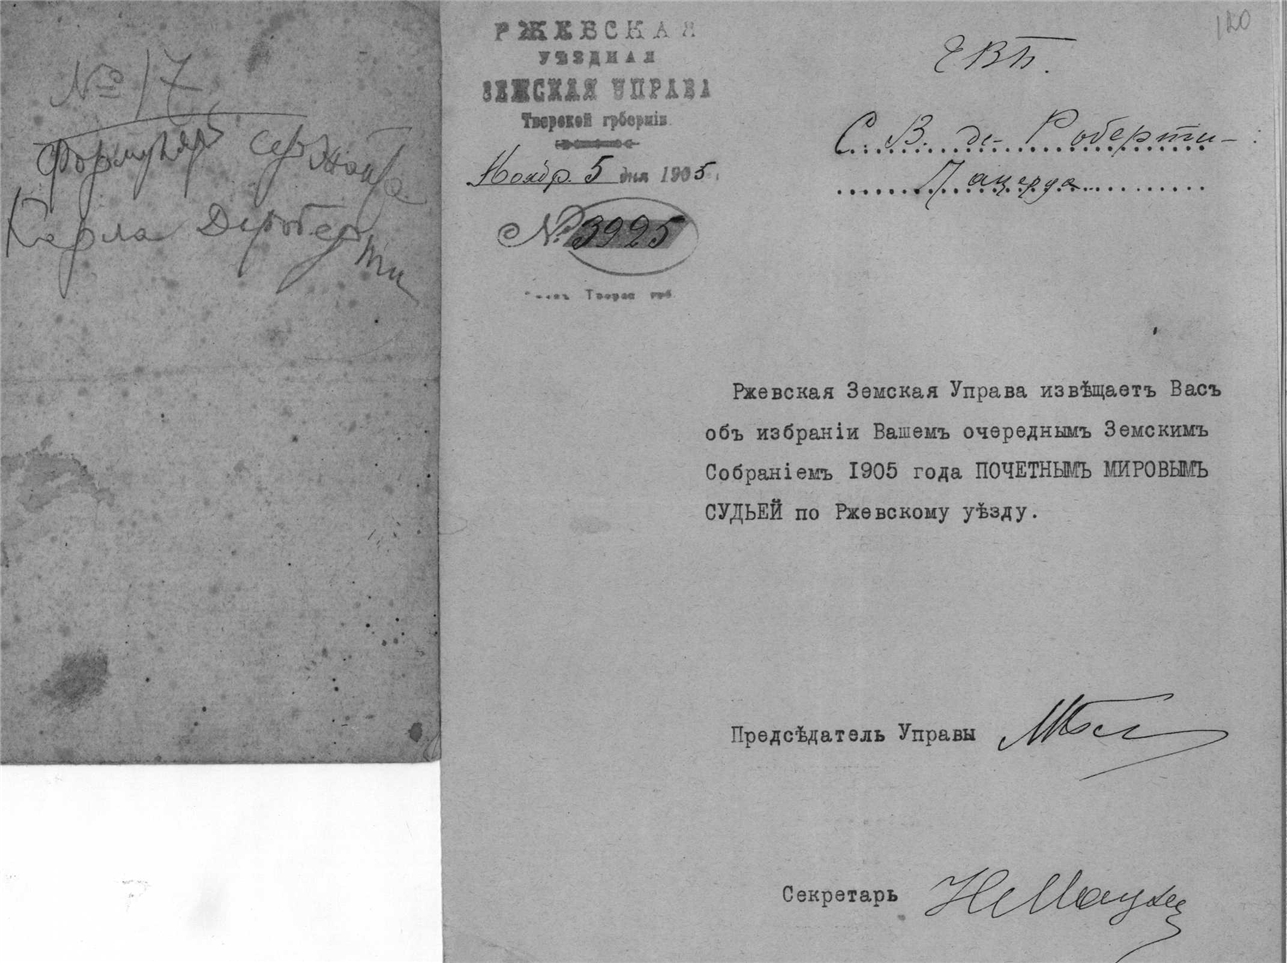 № 17
Формуляръ сержанта
Карла Дероберти
РЖЕВСКАЯ
УѢЗДНАЯ
ЗЕМСКАЯ УПРАВА
Тверской губерніи
Ноябр. 5 дня 1905
№ 3925
Тверск губ
120
ЕВБ.
С. В. де-Роберти-
Лацерда
Ржевская Земская Управа извѣщаетъ Васъ
объ избраніи Вашемъ очереднымъ Земскимъ
Собраніемъ 1905 года ПОЧЕТНЫМЪ МИРОВЫМЪ
СУДЬЕЙ по Ржевскому уѣзду.
Предсѣдатель Управы
Секретарь